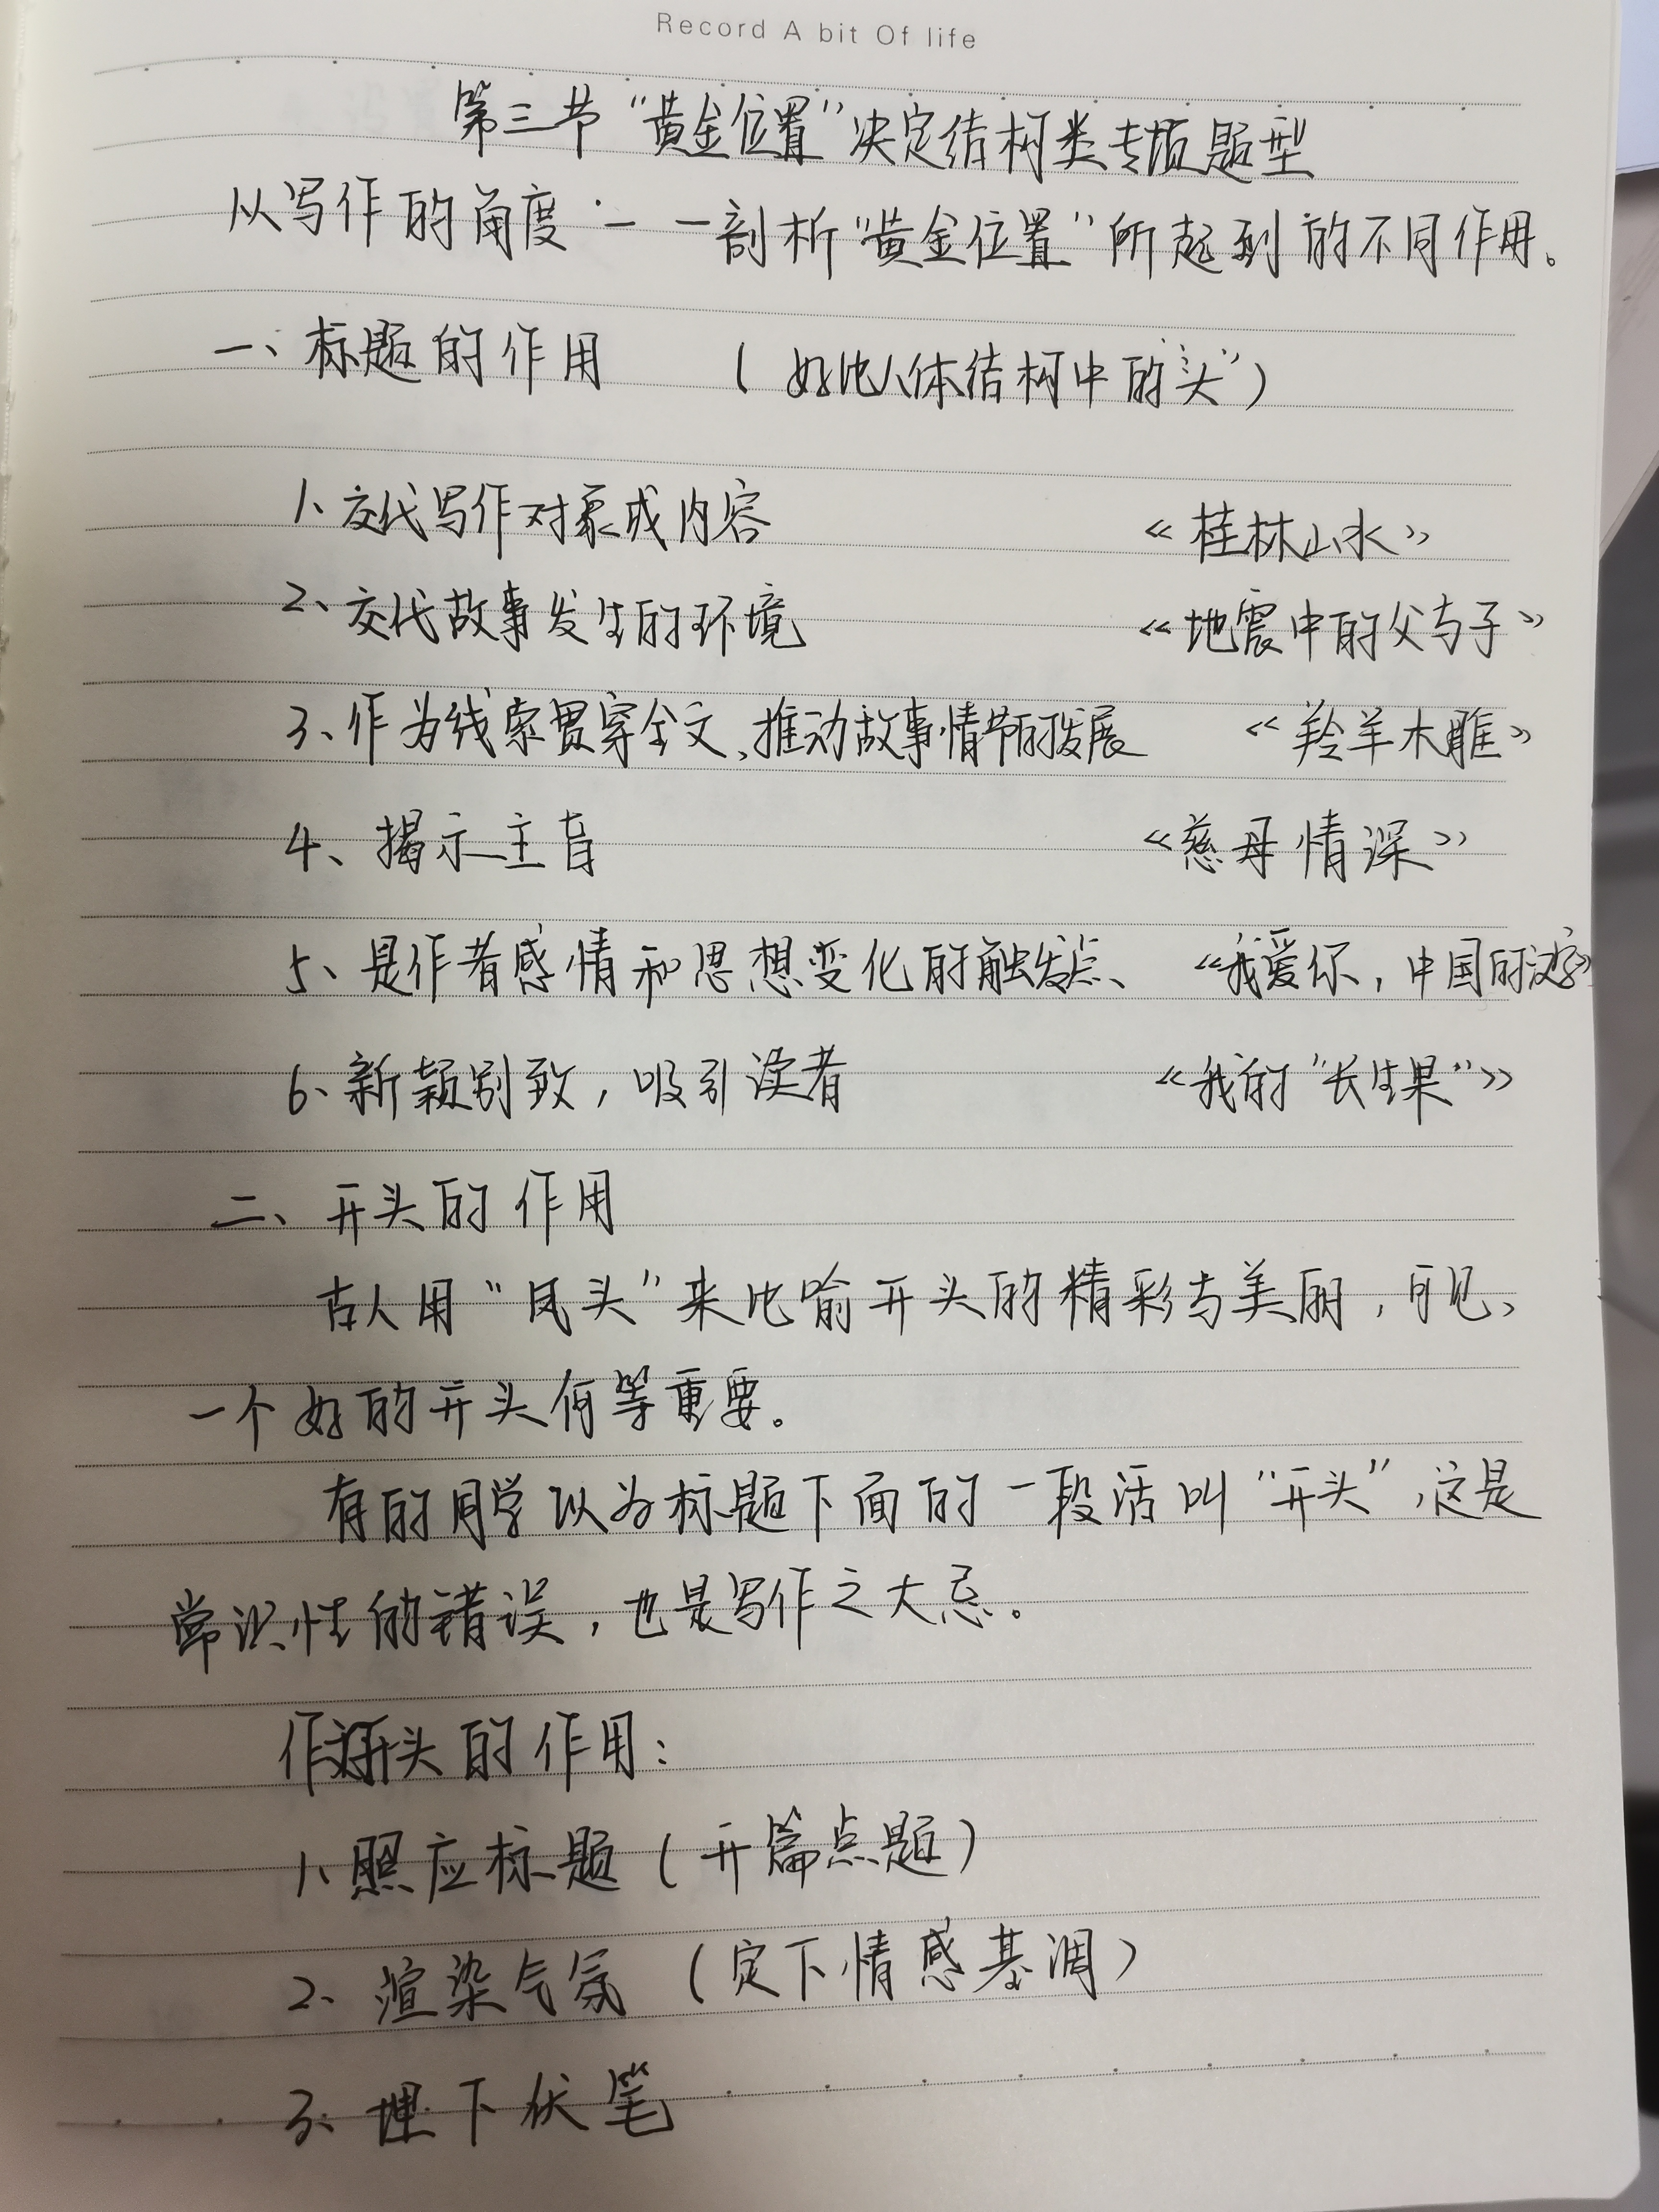 Record A bit Of life
第三节“黄金位置”决定结构类专项题型
从写作的角度一一剖析“黄金位置”所起到的不同作用。
一、标题的作用 （好比人体结构中的“头”）
1、交代写作对象或内容 《桂林山水》
2、交代故事发生的环境 《地震中的父与子》
3、作为线索贯穿全文、推动故事情节的发展 《羚羊木雕》
4、揭示主旨 《慈母情深》
5、是作者感情和思想变化的触发点、 《我爱你，中国的汉字》
6、新颖别致，吸引读者 《我的“长生果”》
二、开头的作用
古人用“凤头”来比喻开头的精彩与美丽，可见、
一个好的开头何等重要。
有的同学以为标题下面的一段话叫“开头”，这是
常识性的错误，也是写作之大忌。
作文开头的作用：
1、照应标题（开篇点题）
2、渲染气氛（定下情感基调）
3、埋下伏笔